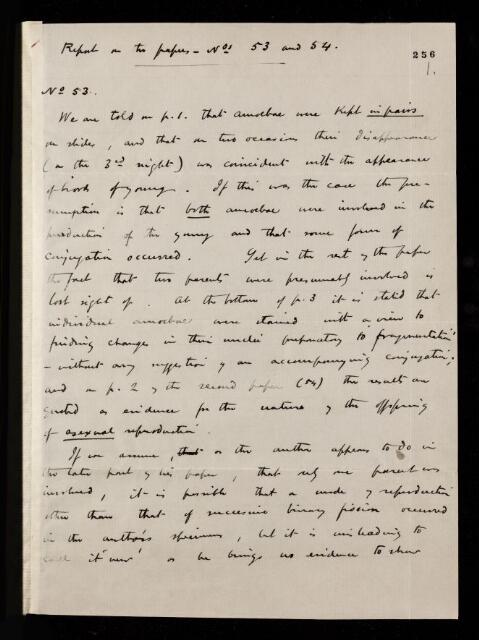 Report on two papers - Nos 53 and 54.
256
1.
No 53.
We are told on p.1. that amoebae were kept in pairs
on slides, and that on two occasions their disappearance
(on the 3rd night) was coincident with the appearance
of broods of young. If this was the case the pre-
sumption is that both amoebae were involved in the
production of the young and that some form of
conjugation occurred. Yet in the rest of the paper
the fact that two parents were presumably involved is
lost sight of. At the bottom of p.3 it is stated that
individual amoebae were stained with a view to
finding changes in their nuclei preparatory to fragmentation
- without any suggestion of an accompanying conjugation;
and on p.2 of the second paper (54) the results are
quoted as evidence for the nature of the offspring
of asexual reproduction.
If we assume, that as the author appears to do in
the later part of his paper, that only one parent was
involved, it is possible that a mode of reproduction
other than that of successive binary fission occurred
in the author's specimens, but it is misleading to
call it 'new' as he brings no evidence to show